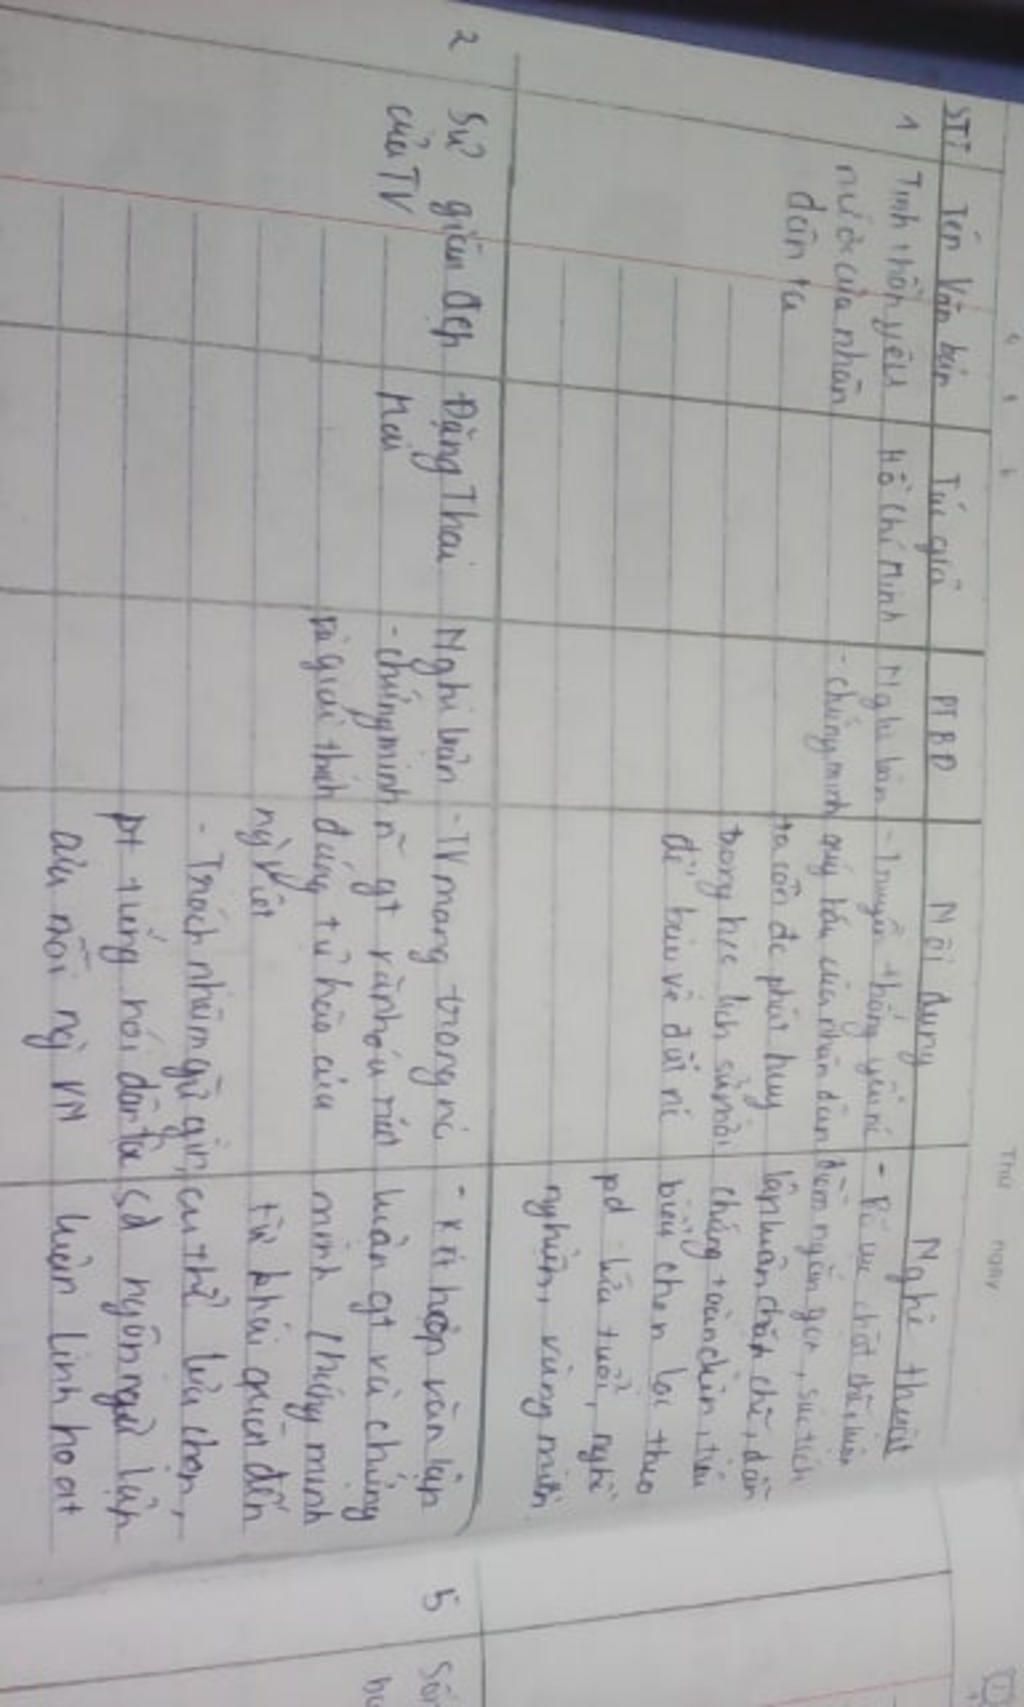 Thứ ngày
STT Tên Văn bản Tác giả PTBĐ Nội dung Nghệ thuật
1 Tinh thần yêu Hồ Chí Minh Nghị luận - Truyền thống yêu nc - Bố cục chặt chẽ, luận
nước của nhân - chứng minh quý báu của nhân dân điểm ngắn gọn, súc tích
dân ta ta cần đc phát huy lập luận chặt chẽ, dẫn
trong học lịch sử mới chứng toàn diện, tiêu
để bảo vệ đất nc biểu chọn lọc theo
pd lứa tuổi, nghề
nghiệp, vùng miền.
2 Sự giàu đẹp Đặng Thai Nghị luận - TV mang trong nc - Kết hợp văn lập
của TV Mai - chứng minh n~ gt văn hóa rất luận gt và chứng
và giải thích đáng tự hào của minh / chứng minh
ng` Việt từ khái quát đến
- Trách nhiệm giữ gìn, cụ thể lựa chọn,
pt tiếng nói dân tộc sd ngôn ngữ lập
của mỗi ng` VN luận linh hoạt
5